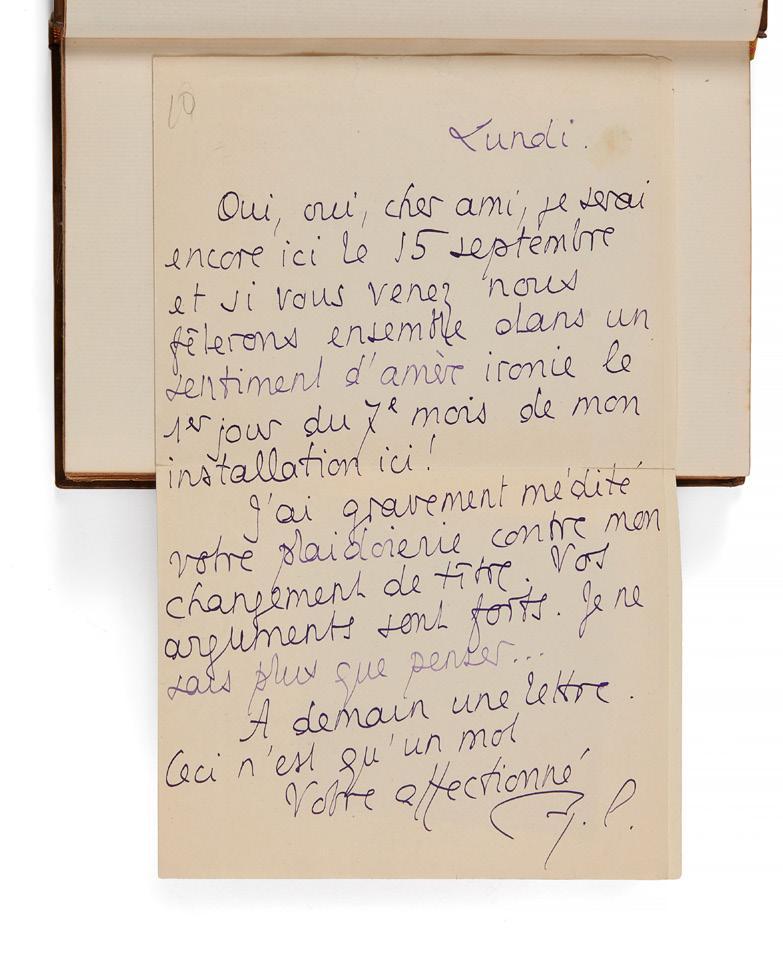 10
Lundi.
Oui, oui, cher ami, je serai
encore ici le 15 septembre
et si vous venez nous
fêterons ensemble dans un
sentiment d'amère ironie le
1er jour du 7e mois de mon
installation ici !
J'ai gravement médité
votre plaidoierie contre mon
changement de titre. Vos
arguments sont forts. Je ne
sais plus que penser...
A demain une lettre.
Ceci n'est qu'un mot
Votre affectionné